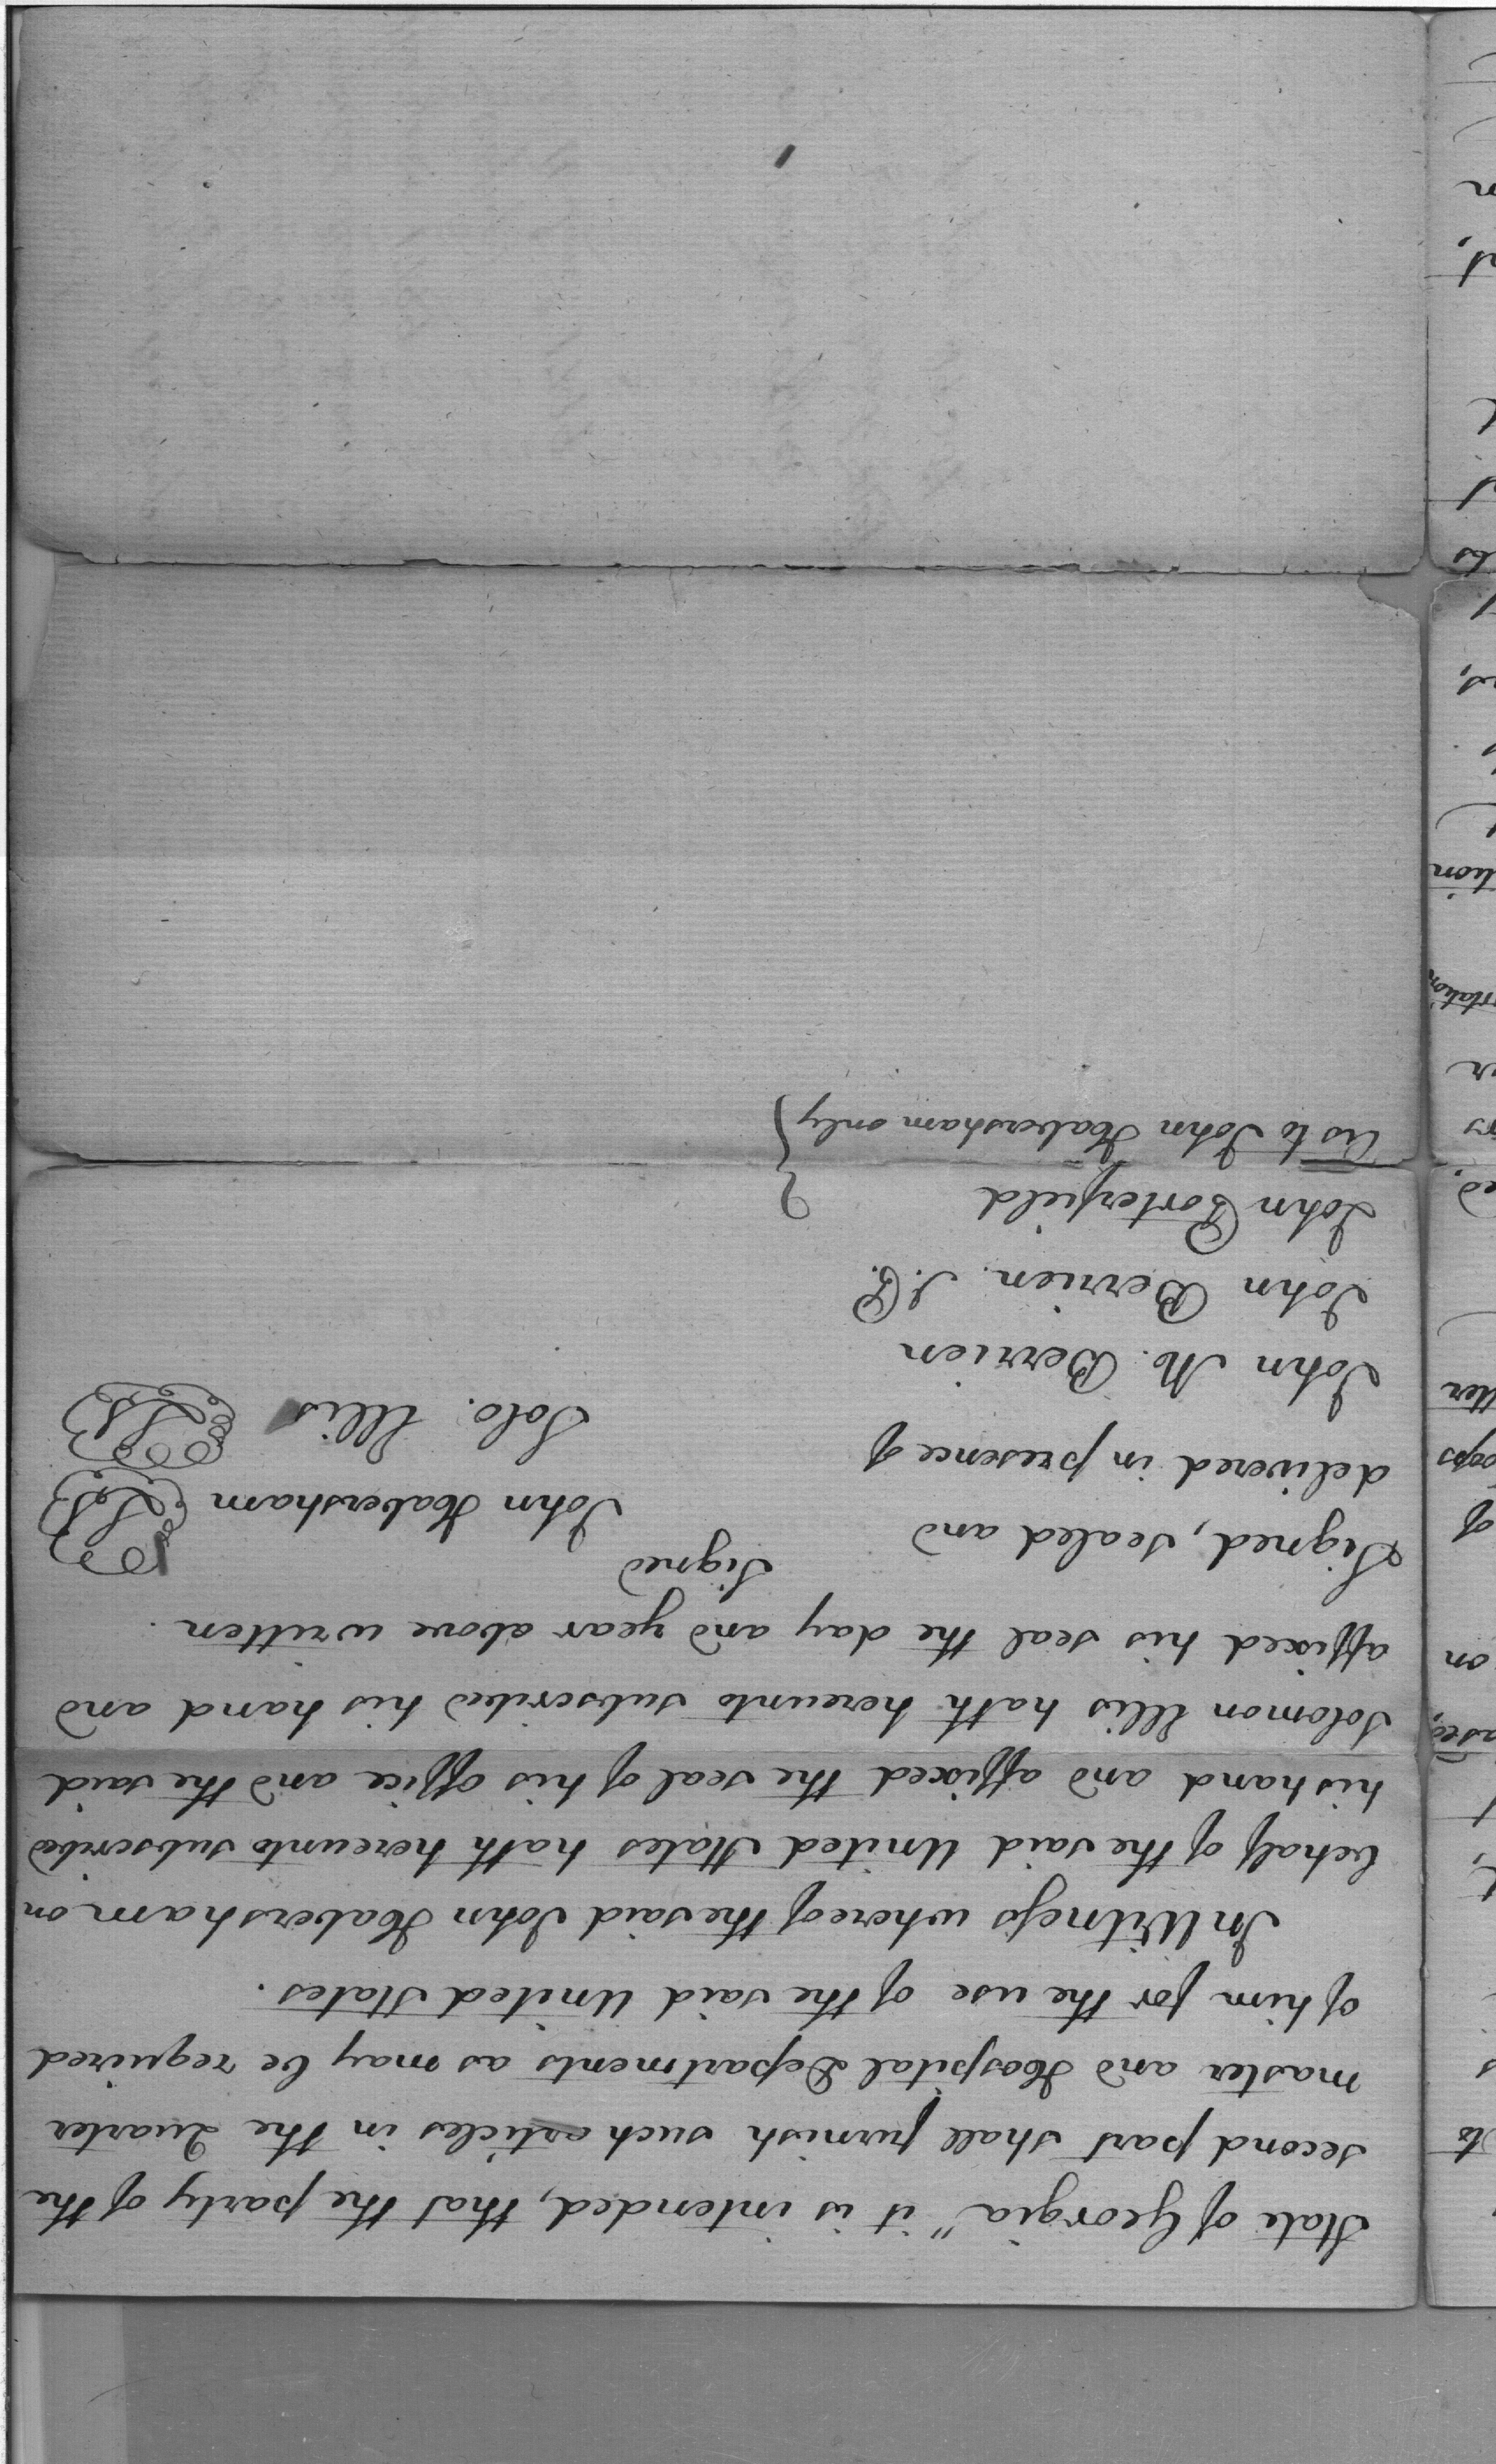 State of Georgia" it is intended, that the party of the
second part shall furnish such articles in the Quarter
master and Hospital Departments as may be required
of him for the use of the said United States.
In Witness whereof the said John Habersham on
behalf of the said United States hath hereunto subscribed
his hand and affixed the seal of his office and the said
Solomon Ellis hath hereunto subscribed his hand and
affixed his seal the day and year above written.
Signed
Signed, sealed and
John Habersham LS
delivered in presence of
Solo. Ellis LS
John M. Berrien
John Berrien J.P.
John Porterfield
As to John Habersham only